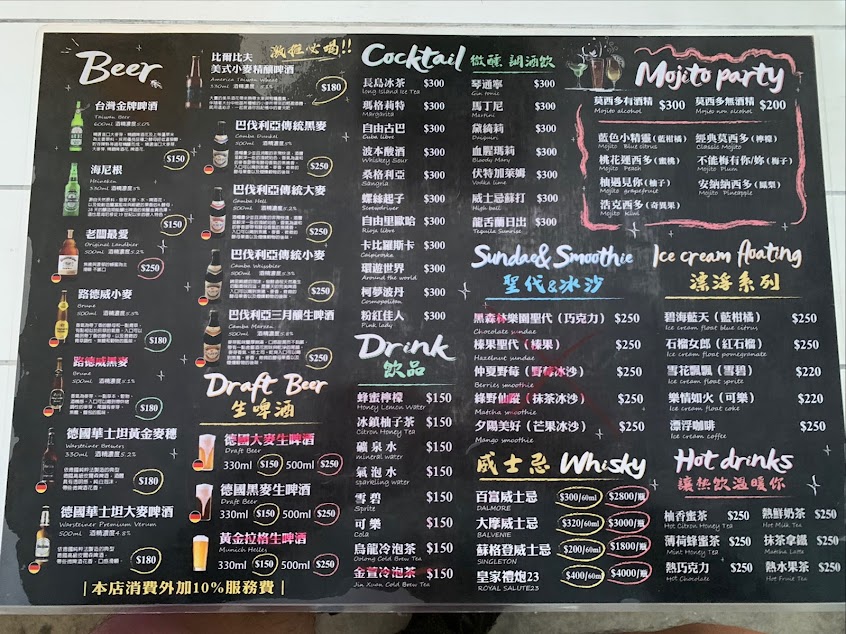 Beer
台灣金牌啤酒
Taiwan Beer
600ml 酒精濃度5%
$150
海尼根
Heineken
330ml 酒精濃度5%
$150
老闆最愛
Original Landbier
500ml 酒精濃度5.2%
$250
路德威小麥
Brune
500ml 酒精濃度5.3%
$180
路德威黑麥
Brune
500ml 酒精濃度5.1%
$180
德國華士坦黃金麥穗
Warsteiner Brewers
330ml 酒精濃度5.2%
$180
德國華士坦大麥啤酒
Warsteiner Premium Verum
500ml 酒精濃度4.8%
$180
激推必喝!!
比爾比夫
美式小麥精釀啤酒
America Taiwan Wheat
330ml
$180
巴伐利亞傳統黑麥
Camba Dunkel
500ml
$250
巴伐利亞傳統大麥
Camba Hell
500ml 酒精濃度5.2%
$250
巴伐利亞傳統小麥
500ml 酒精濃度5.3%
$250
巴伐利亞三月釀生啤酒
500ml 酒精濃度5.8%
$250
Draft Beer
生啤酒
德國大麥生啤酒
Draft Beer
330ml $150 500ml $250
德國黑麥生啤酒
Draft Beer
330ml $150 500ml $250
黃金拉格生啤酒
Munich Helles
330ml $150 500ml $250
|本店消費外加10%服務費|
Cocktail 微醺 調酒飲
長島冰茶 $300
Long Island Ice Tea
瑪格莉特 $300
Margarita
自由古巴 $300
Cuba libre
波本酸酒 $300
Whiskey Sour
桑格利亞 $300
Sangria
螺絲起子 $300
Screwdriver
自由里歐哈 $300
Rioja libre
卡比羅斯卡 $300
Caipiroska
環遊世界 $300
Around the world
柯夢波丹 $300
Cosmopolitan
粉紅佳人 $300
Pink lady
琴通寧 $300
Gin tonic
馬丁尼 $300
Martini
黛綺莉 $300
Daiquiri
血腥瑪莉 $300
Bloody Mary
伏特加萊姆 $300
Vodka lime
威士忌蘇打 $300
High ball
龍舌蘭日出 $300
Tequila Sunrise
Drink
飲品
蜂蜜檸檬 $150
Honey Lemon Water
冰鎮柚子茶 $150
Citron Honey Tea
礦泉水 $150
mineral water
氣泡水 $150
sparkling water
雪碧 $150
Sprite
可樂 $150
Cola
烏龍冷泡茶 $150
Oolong Cold Brew Tea
金萱冷泡茶 $150
Jin Xuan Cold Brew Tea
Mojito party
莫西多有酒精 $300
Mojito alcohol
莫西多無酒精 $200
Mojito non alcohol
藍色小精靈(藍柑橘)
Mojito Blue citrus
經典莫西多(檸檬)
Classic Mojito
桃花運西多(蜜桃)
Mojito Peach
不能梅有你/妳(梅子)
Mojito Plum
柚遇見你(柚子)
Mojito grapefruit
安納納西多(鳳梨)
Mojito Pineapple
浩克西多(奇異果)
Mojito kiwi
Sundae & Smoothie
聖代&冰沙
黑森林樂園聖代(巧克力) $250
Chocolate sundae
榛果聖代(榛果) $250
Hazelnut sundae
仲夏野莓(野莓冰沙) $250
Berries smoothie
綠野仙蹤(抹茶冰沙) $250
Matcha smoothie
夕陽美好(芒果冰沙) $250
Mango smoothie
Ice cream floating
漂浮系列
碧海藍天(藍柑橘) $250
Ice cream float blue citrus
石榴女郎(紅石榴) $250
Ice cream float pomegranate
雪花飄飄(雪碧) $220
Ice cream float sprite
樂情如火(可樂) $220
Ice cream float coke
漂浮咖啡 $250
Ice cream coffee
威士忌 Whisky
百富威士忌 $300/60ml $2800/瓶
DALMORE
大摩威士忌 $320/60ml $3000/瓶
BALVENIE
蘇格登威士忌 $200/60ml $1800/瓶
SINGLETON
皇家禮炮23 $400/60ml $4000/瓶
ROYAL SALUTE23
Hot drinks
讓熱飲溫暖你
柚香蜜茶 $250
Hot Citron Honey Tea
熱鮮奶茶 $250
Hot Milk Tea
薄荷蜂蜜茶 $250
Mint Honey Tea
抹茶拿鐵 $250
Matcha Latte
熱巧克力 $250
Hot Chocolate
熱水果茶 $250
Hot Fruit Tea